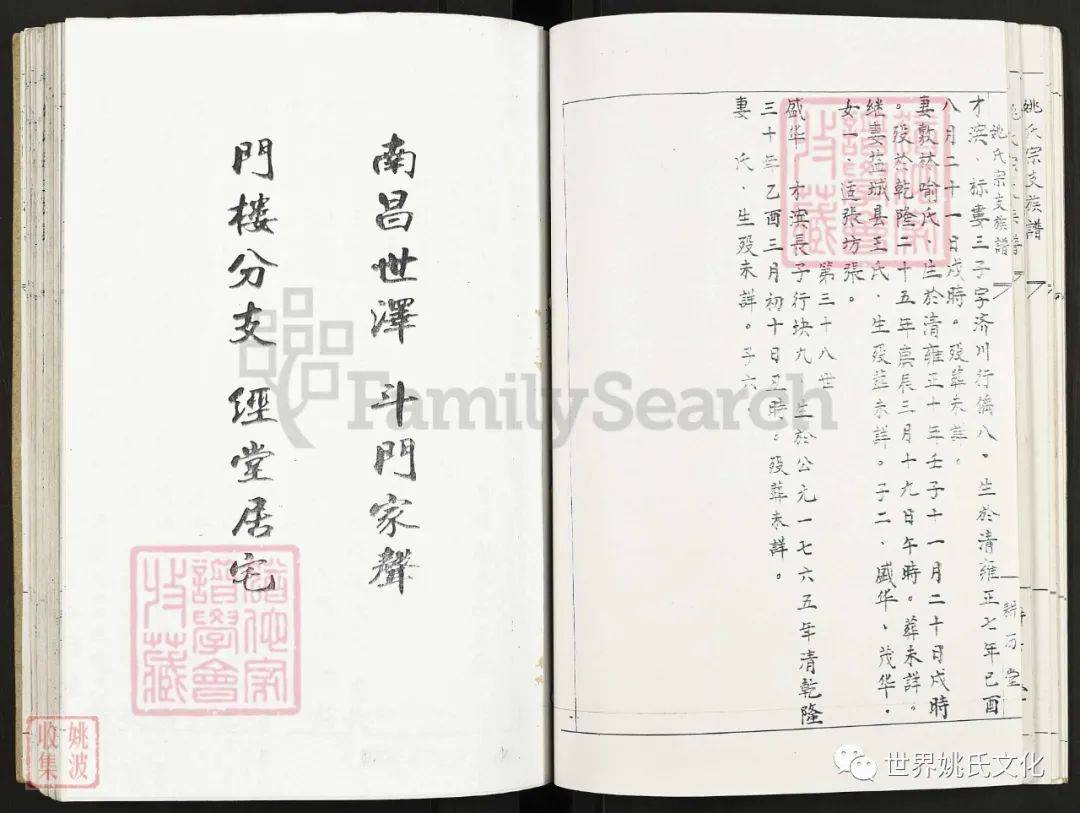 姚氏宗支族譜
姚氏宗支族譜
才滨、标妻三子字济川行儁八、生於清雍正七年已酉
八月二十一日戌時。殁葬未詳。
妻敦林喻氏、生於清雍正十年壬子十一月二十日戌時
。殁於乾隆二十五年庚辰三月十九日午時。葬未詳。
继妻盐城县王氏、生殁葬未詳。子二、盛华、茂华。
女一、适張坊張。
第三十八世
盛华 才滨長子行块九、生於公元一七六五年清乾隆
三十年乙酉三月初十日丑時。殁葬未詳。
妻 氏、生殁未詳。子六、
南昌世澤 斗門家聲
門楼分支 經堂居宅
譜學會
收藏
姚波
收集
FamilySearch
世界姚氏文化